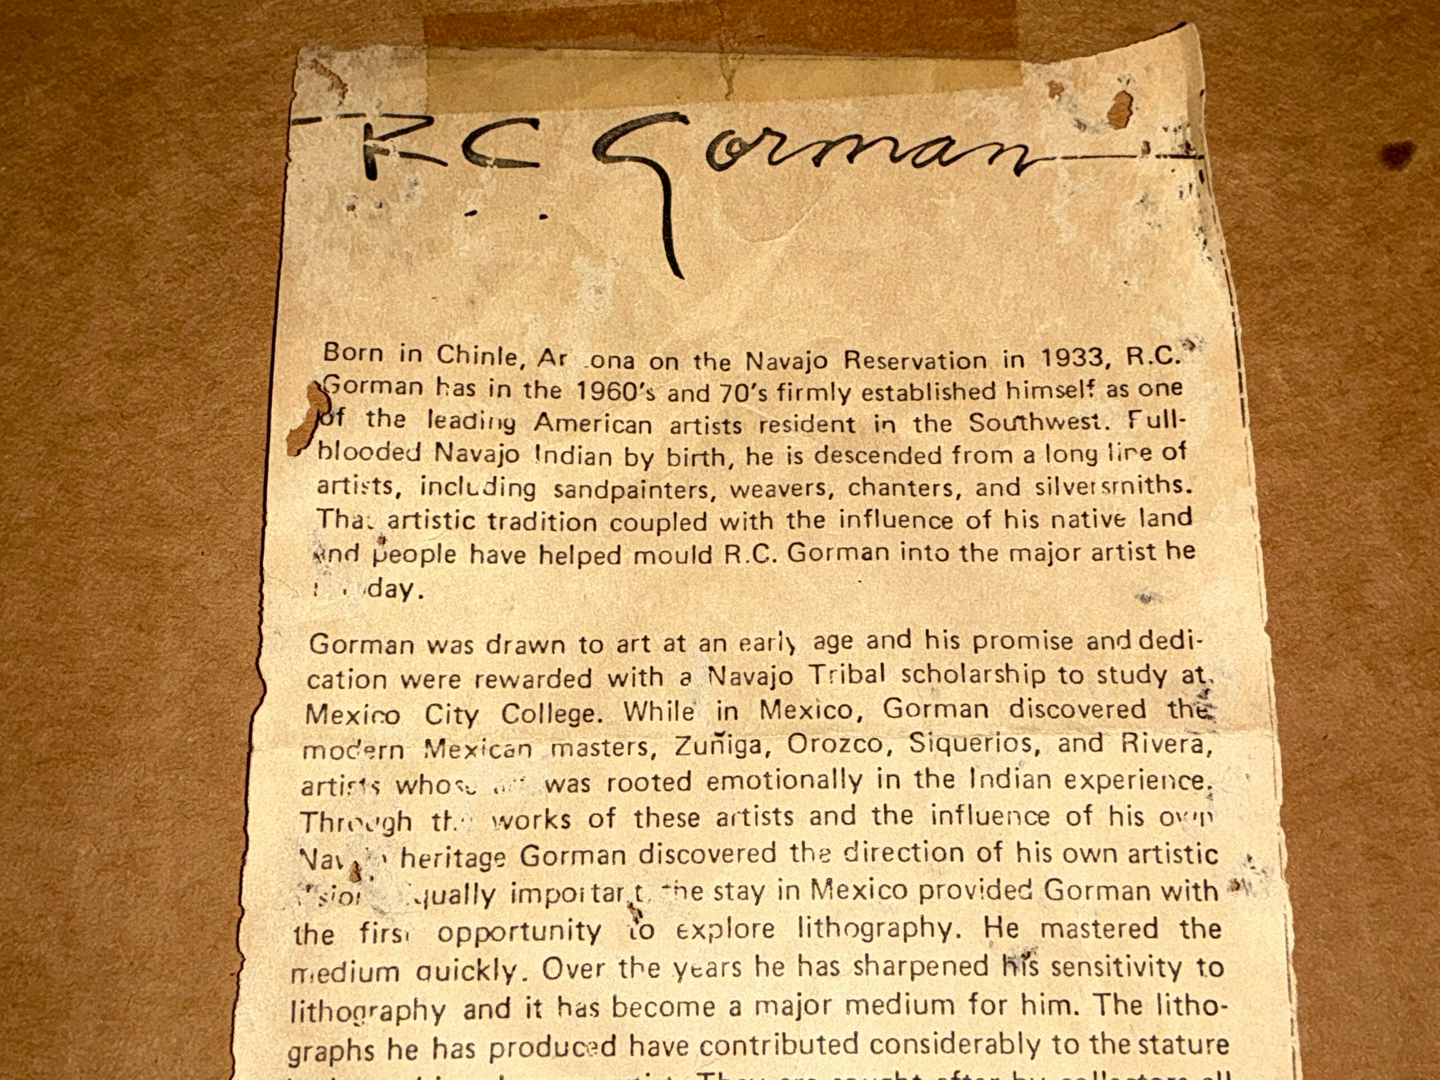 R.C. Gorman
Born in Chinle, Ar ona on the Navajo Reservation in 1933, R.C.
Gorman has in the 1960's and 70's firmly established himself as one
of the leading American artists resident in the Southwest. Full-
blooded Navajo Indian by birth, he is descended from a long line of
artists, including sandpainters, weavers, chanters, and silversmiths.
That artistic tradition coupled with the influence of his native land
and people have helped mould R.C. Gorman into the major artist he
day.
Gorman was drawn to art at an early age and his promise and dedi-
cation were rewarded with a Navajo Tribal scholarship to study at
Mexico City College. While in Mexico, Gorman discovered the
modern Mexican masters, Zuñiga, Orozco, Siquerios, and Rivera,
artists whose was rooted emotionally in the Indian experience.
Through the works of these artists and the influence of his own
Navajo heritage Gorman discovered the direction of his own artistic
qually important, the stay in Mexico provided Gorman with
the first opportunity to explore lithography. He mastered the
medium quickly. Over the years he has sharpened his sensitivity to
lithography and it has become a major medium for him. The litho-
graphs he has produced have contributed considerably to the stature
They are sought after by collectors all